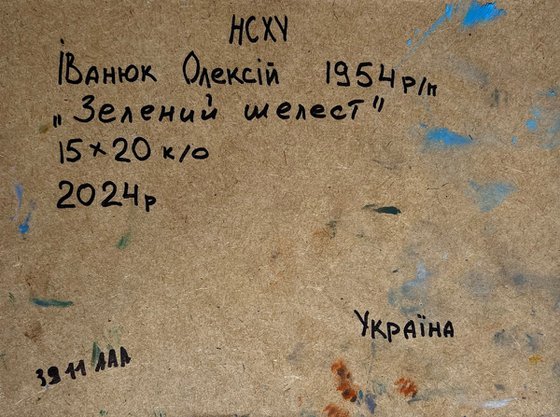 НСХУ
Іванюк Олексій 1954 р/н
„Зелений шелест"
15×20 к/о
2024р
Україна
3911 ААА